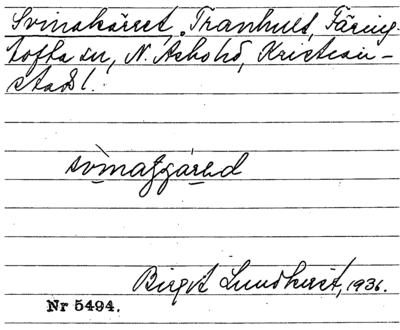 Svinakärret, Tranhult, Färing-
tofta sn, N. Åsbohd, Kristian-
stads l.
svìnatjàred
Birgit Lundkvist, 1936.
Nr 5494.